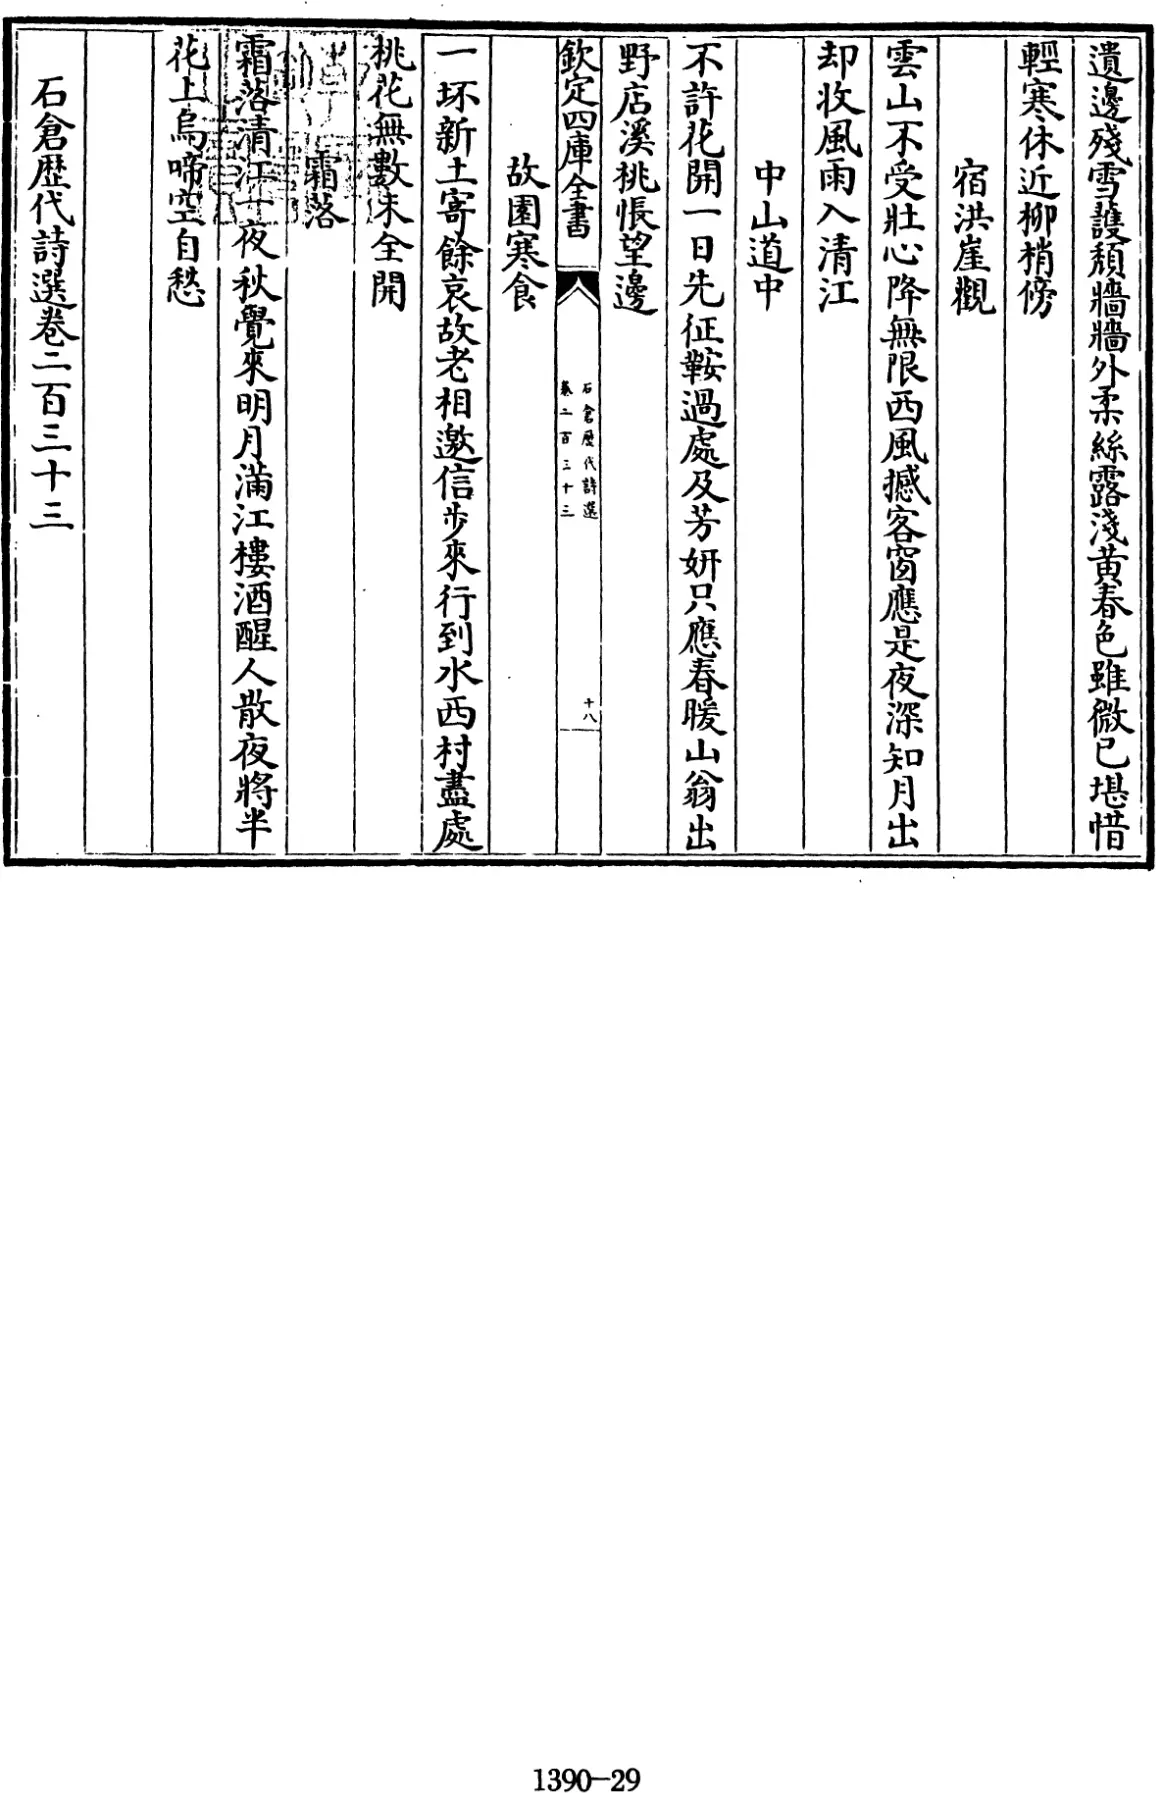 遺邊殘雪䕶頹牆牆外柔絲露淺黄春色雖微已堪惜
輕寒休近柳梢傍
宿洪崖觀
雲山不受壯心降無限西風撼客窗應是夜深知月出
却收風雨入清江
中山道中
不許花開一日先征鞍過處及芳妍只應春暖山翁出
野店溪桃悵望邊
欽定四庫全書
石倉歷代詩選
卷二百三十三
十八
故園寒食
一坏新土寄餘哀故老相邀信步來行到水西村盡處
桃花無數未全開
霜落
霜落清江一夜秋覺來明月滿江樓酒醒人散夜將半
花上烏啼空自愁
石倉歷代詩選卷二百三十三
1390-29